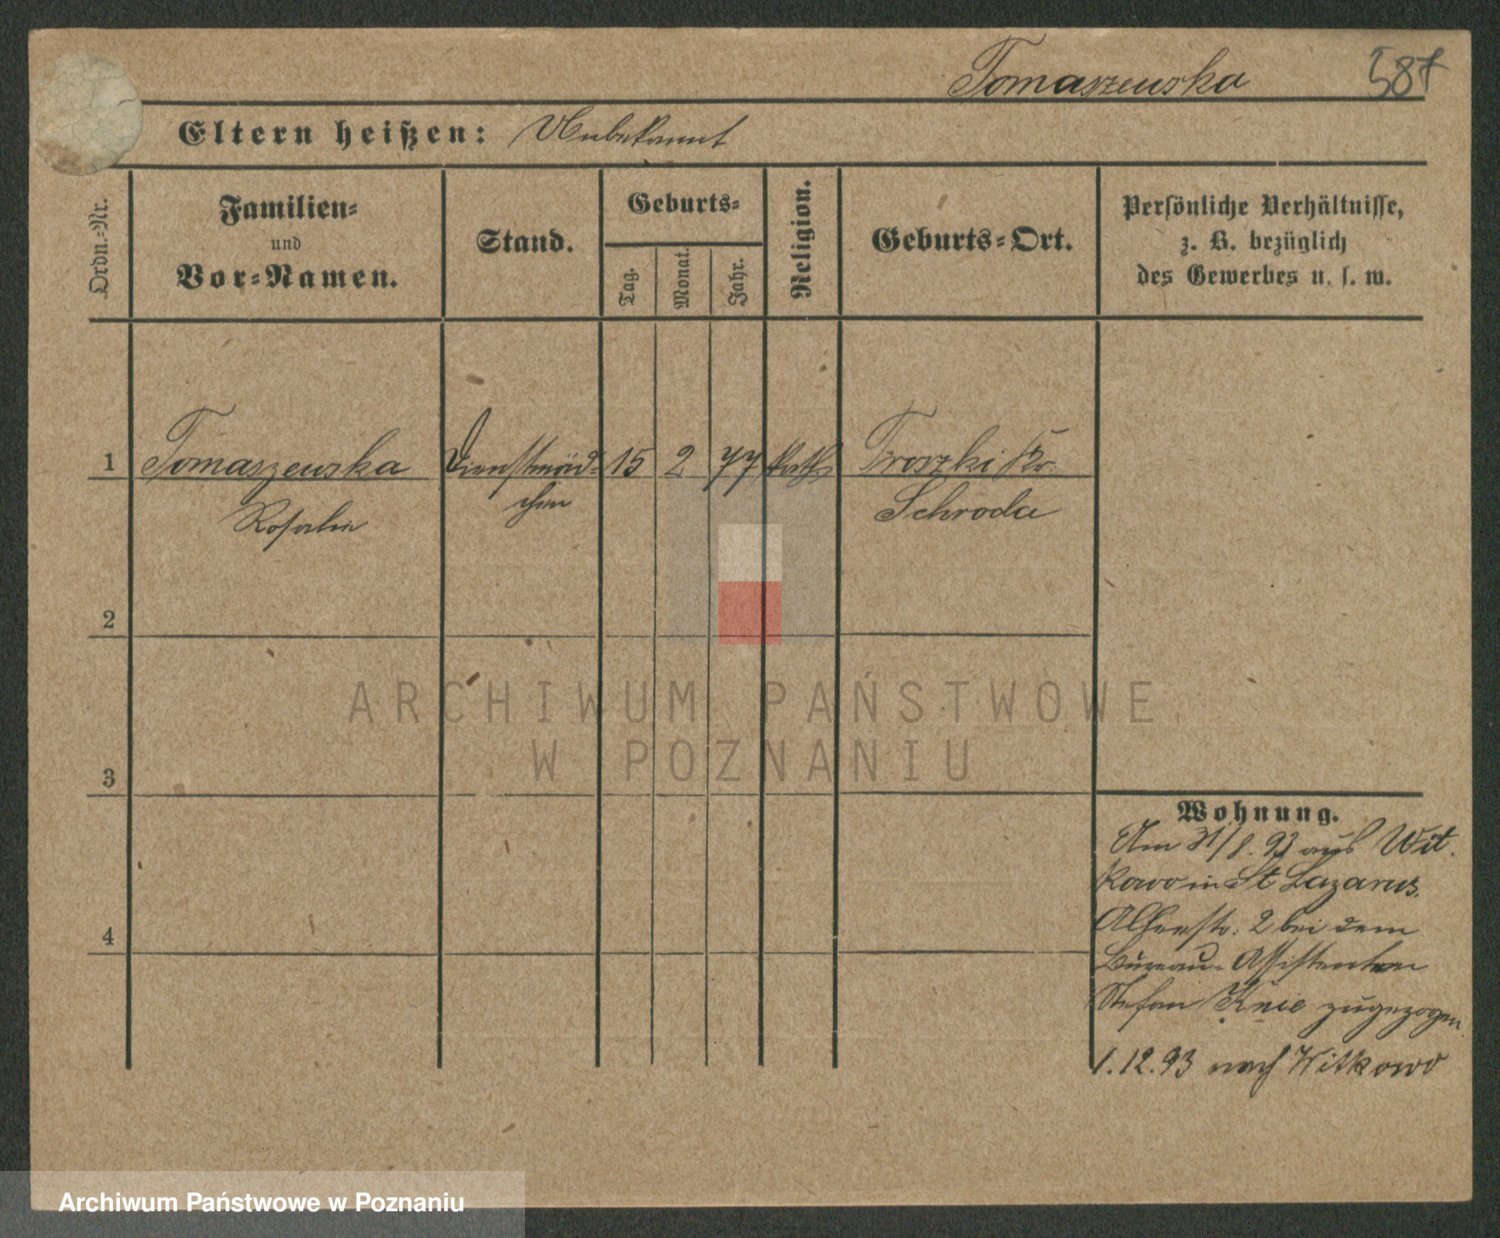 Tomaszewska 587
Eltern heißen: Unbekannt
Ordn.-Nr.
Familien-
und
Vor-Namen.
Stand.
Geburts-
Tag.
Monat.
Jahr.
Religion.
Geburts-Ort.
Persönliche Verhältnisse,
z. B. bezüglich
des Gewerbes u. s. w.
1 Tomaszewska Dienstmäd- 15 2 77 kath Kr.
Rosalie chen Schroda
2
3
4
Wohnung.
Am 31/8. 93 aus Wit.
kowo in St Lazarus.
2 bei dem
Bureau-Assistenten
Stefan Knie zugezogen
1.12.93 nach Witkowo
ARCHIWUM PAŃSTWOWE
W POZNANIU
Archiwum Państwowe w Poznaniu